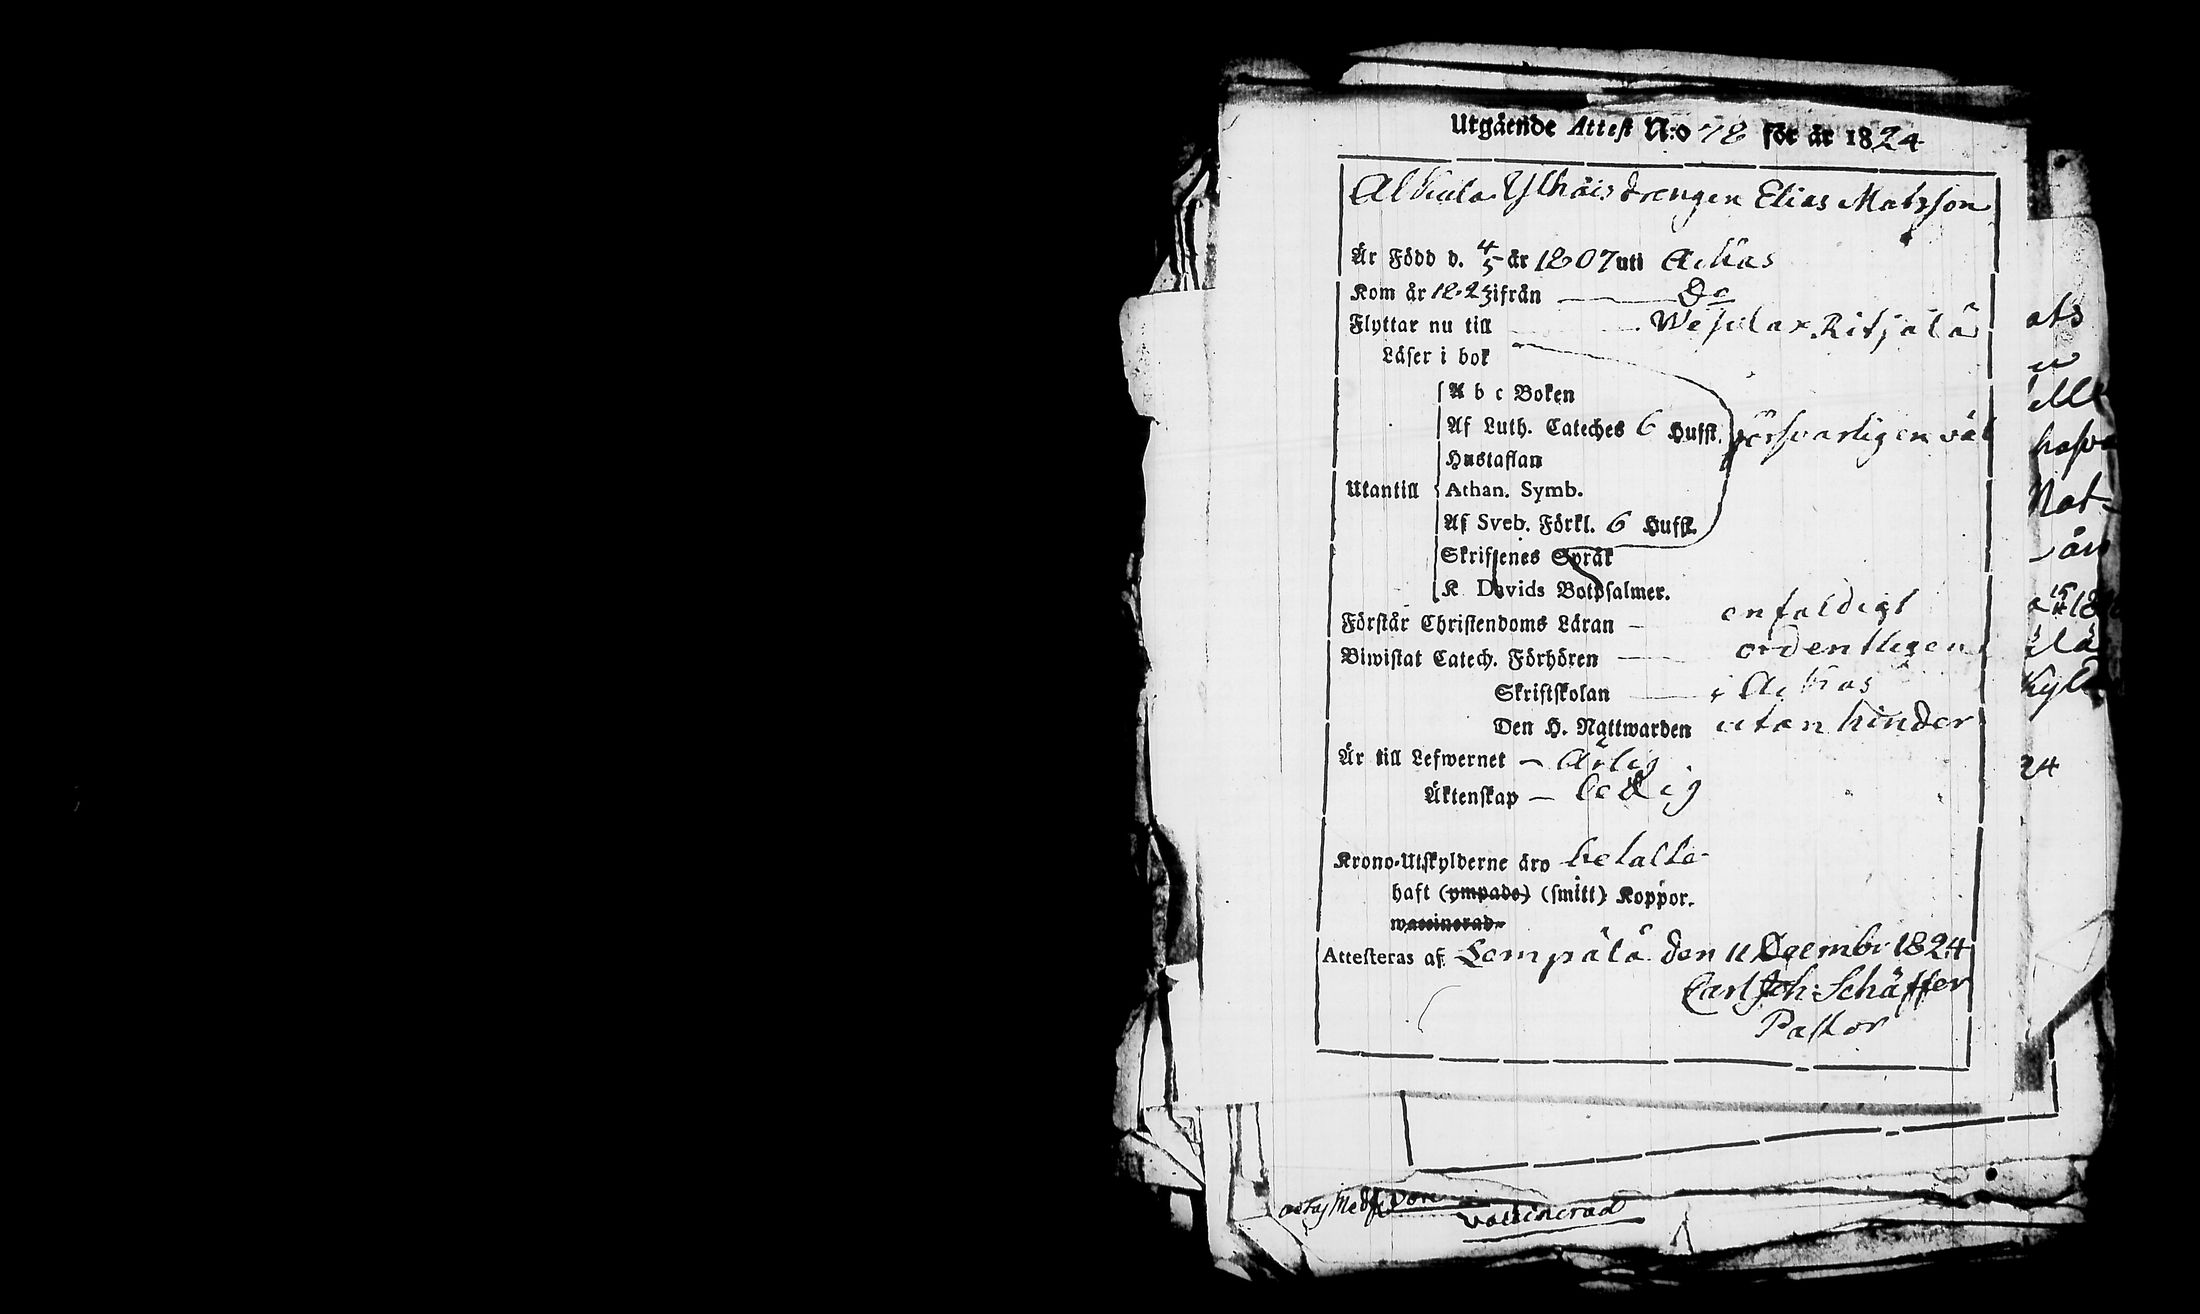 Utgående Attest N:o 78 för år 1824
Alkula Ylhäis drengen Elias Matsson
Är Född d. 4/5 år 1807 uti Ackas
Kom år 1823 ifrån — Do
Flyttar nu till — Wesilax Ritjälä
Läser i bok
A b c Boken
Af Luth. Cateches 6 Hufst. försvarligen väl
Hustaflan
Utantill Athan. Symb.
Af Sveb. Förkl. 6 Hufst.
Skriftenes Språk
K. Davids Botpsalmer.
Förstår Christendoms Läran — enfaldigt
Biwistat Catech. Förhören — ordentligen
Skriftskolan — i Ackas
Den H. Nattwarden utan hinder
Är till Lefwernet — Ärlig
Äktenskap — ledig
Krono-Utskylderne äro betalte
haft (ympade) (smitt) Koppor.
waccinerad
Attesteras af Lempälä den 11 Decembr 1824
Carl Joh: Schäffer
Pastor
ats
Nat-
24
vaccinerad